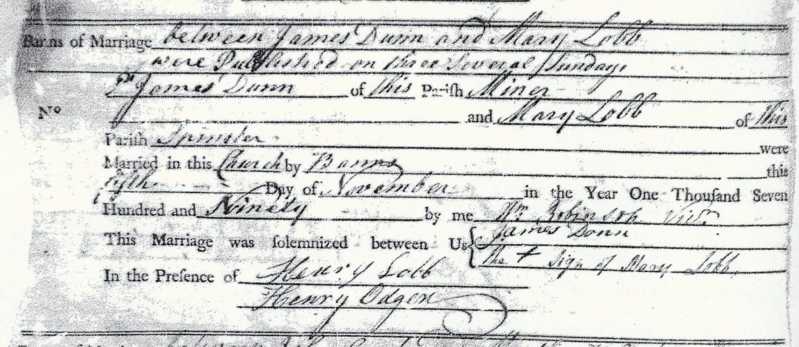 Banns of Marriage between James Dunn and Mary Lobb
were Published on three Several Sundays
James Dunn of this Parish Miner
No and Mary Lobb of this
Parish Spinster were
Married in this Church by Banns this
fifth Day of November in the Year One Thousand Seven
Hundred and Ninety by me Wm Robinson Vicr.
This Marriage was solemnized between Us James Dunn
the + Sign of Mary Lobb
In the Presence of Henry Lobb
Henry Odger